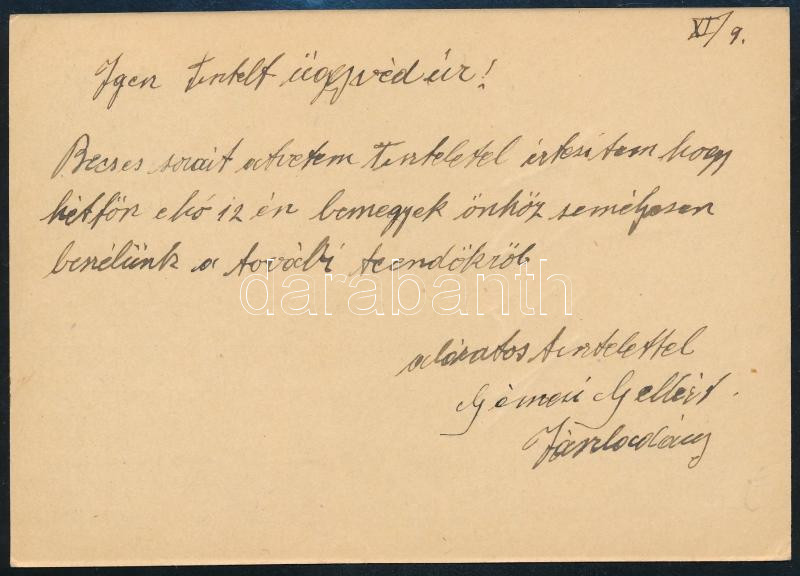 XI/9.
Igen Tisztelt ügyvéd úr!
Becses sorait átvetem Tisztelettel értesítem hogy
hétfőn e hó 12 én bemegyek önhöz személyesen
beszélünk a további teendőkről
darabanth
alázatos tisztelettel
Gémesi Gellért.
Jászladány